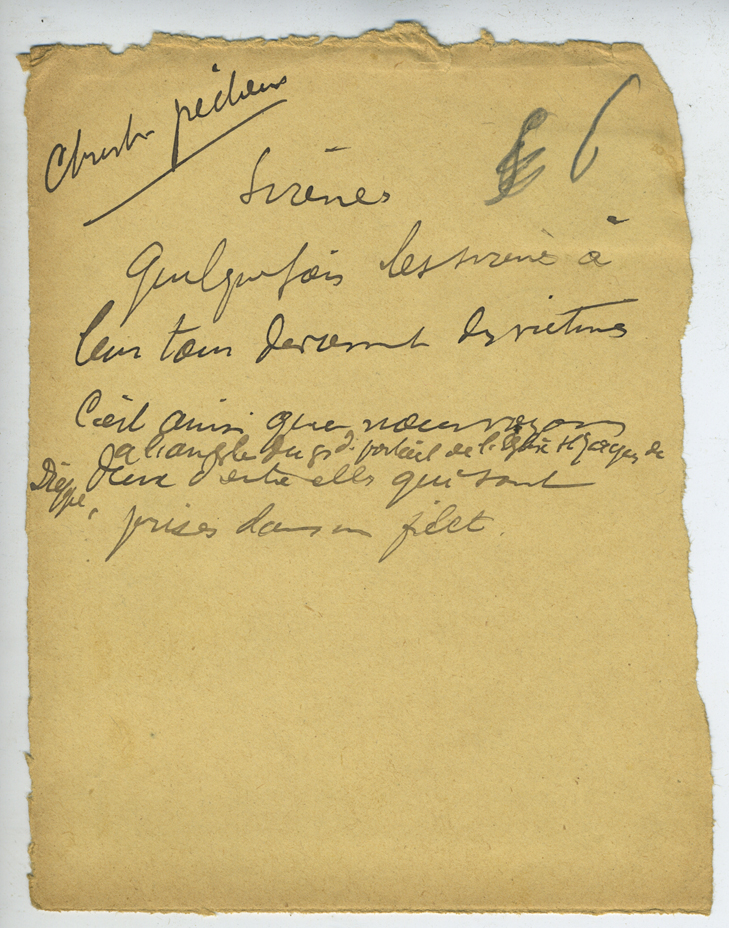 Christ pécheur
6
Sirènes
Quelquefois les sirènes à
leur tour deviennent des victimes
C'est ainsi que nous voyons
à l'angle du gd. portail de l'Eglise St Jacques de
Dieppe, deux d'entre elles qui sont
prises dans un filet.